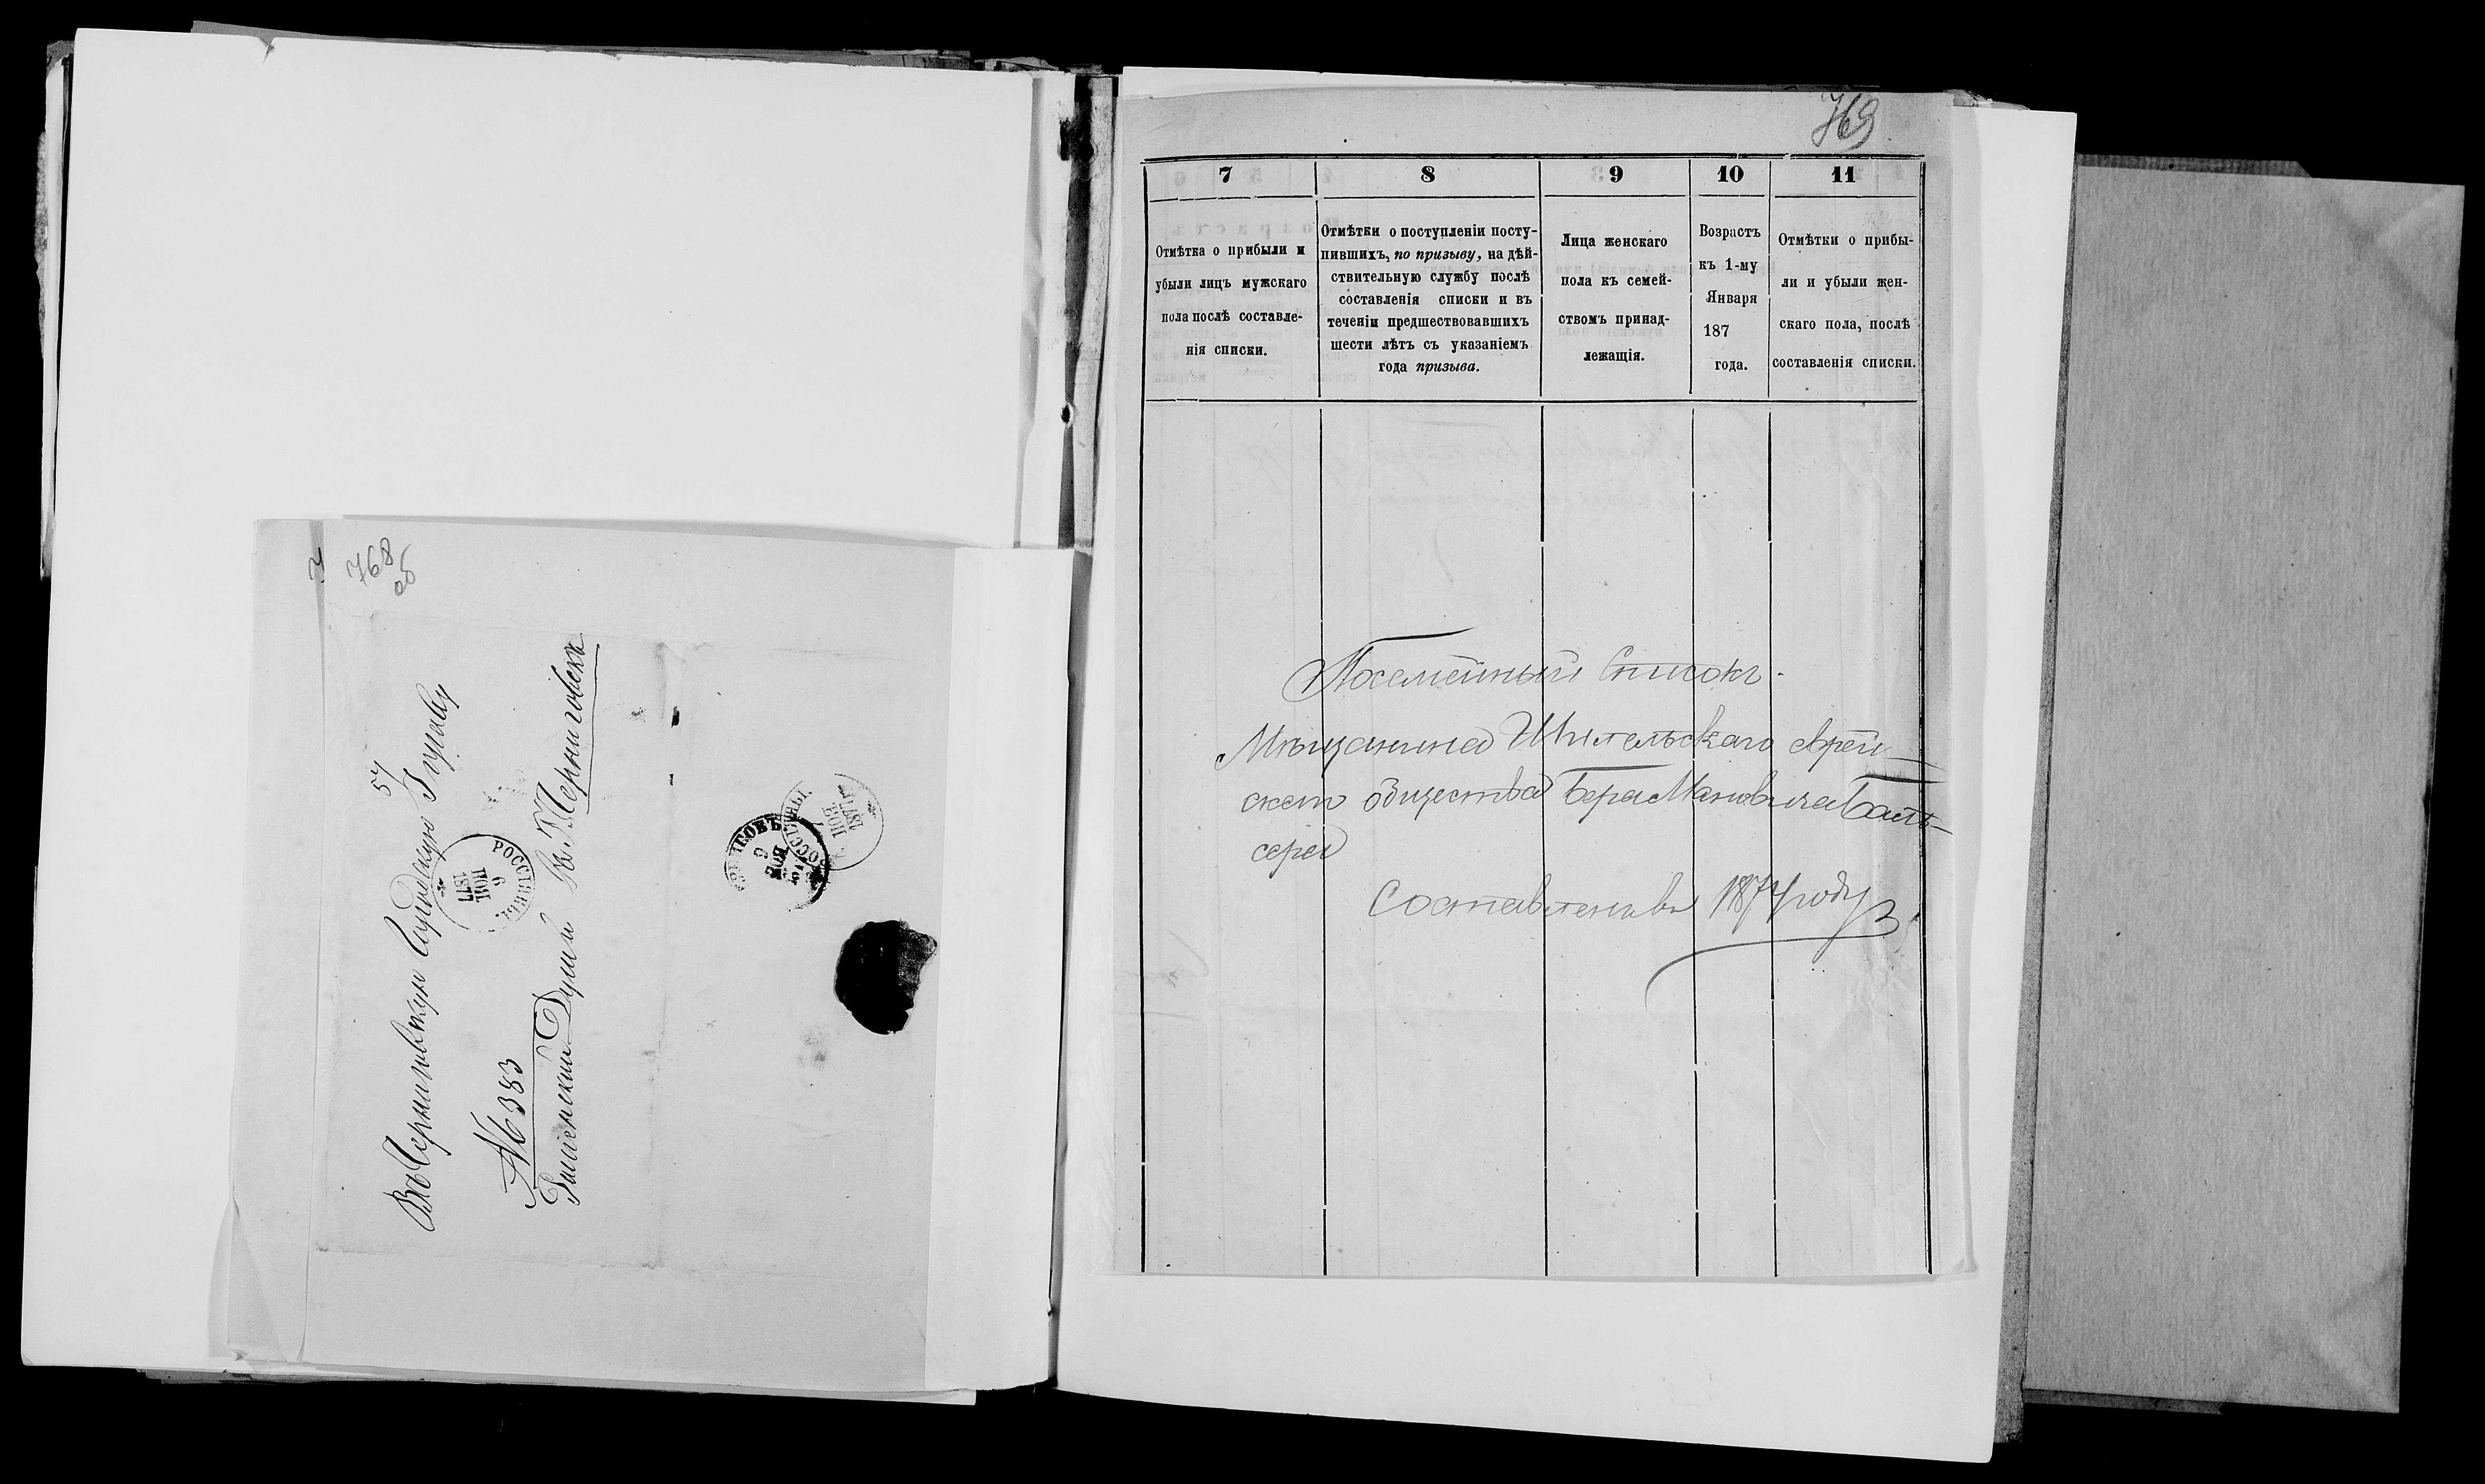 768
об
57
Въ Черниговскую Городскую Думу
№ 383
Россіенской Думы въ Черниговск
РОССІЕНЫ.
6
НОЯ
1877
769
7
8
9
10
11
Отмѣтка о прибыли и
убыли лицъ мужскаго
пола послѣ составле-
нія списки.
Отмѣтки о поступленіи посту-
пившихъ, по призыву, на дѣй-
ствительную службу послѣ
составленія списки и въ
теченіи предшествовавшихъ
шести лѣтъ съ указаніемъ
года призыва.
Лица женскаго
пола къ семей-
ствомъ принад-
лежащія.
Возрастъ
къ 1-му
Января
187
года.
Отмѣтки о прибы-
ли и убыли жен-
скаго пола, послѣ
составленія списки.
Посемейный Списокъ.
Мѣщанина Шительскаго еврей
скаго общества Бера Мановича
Составленъ въ 1874 году